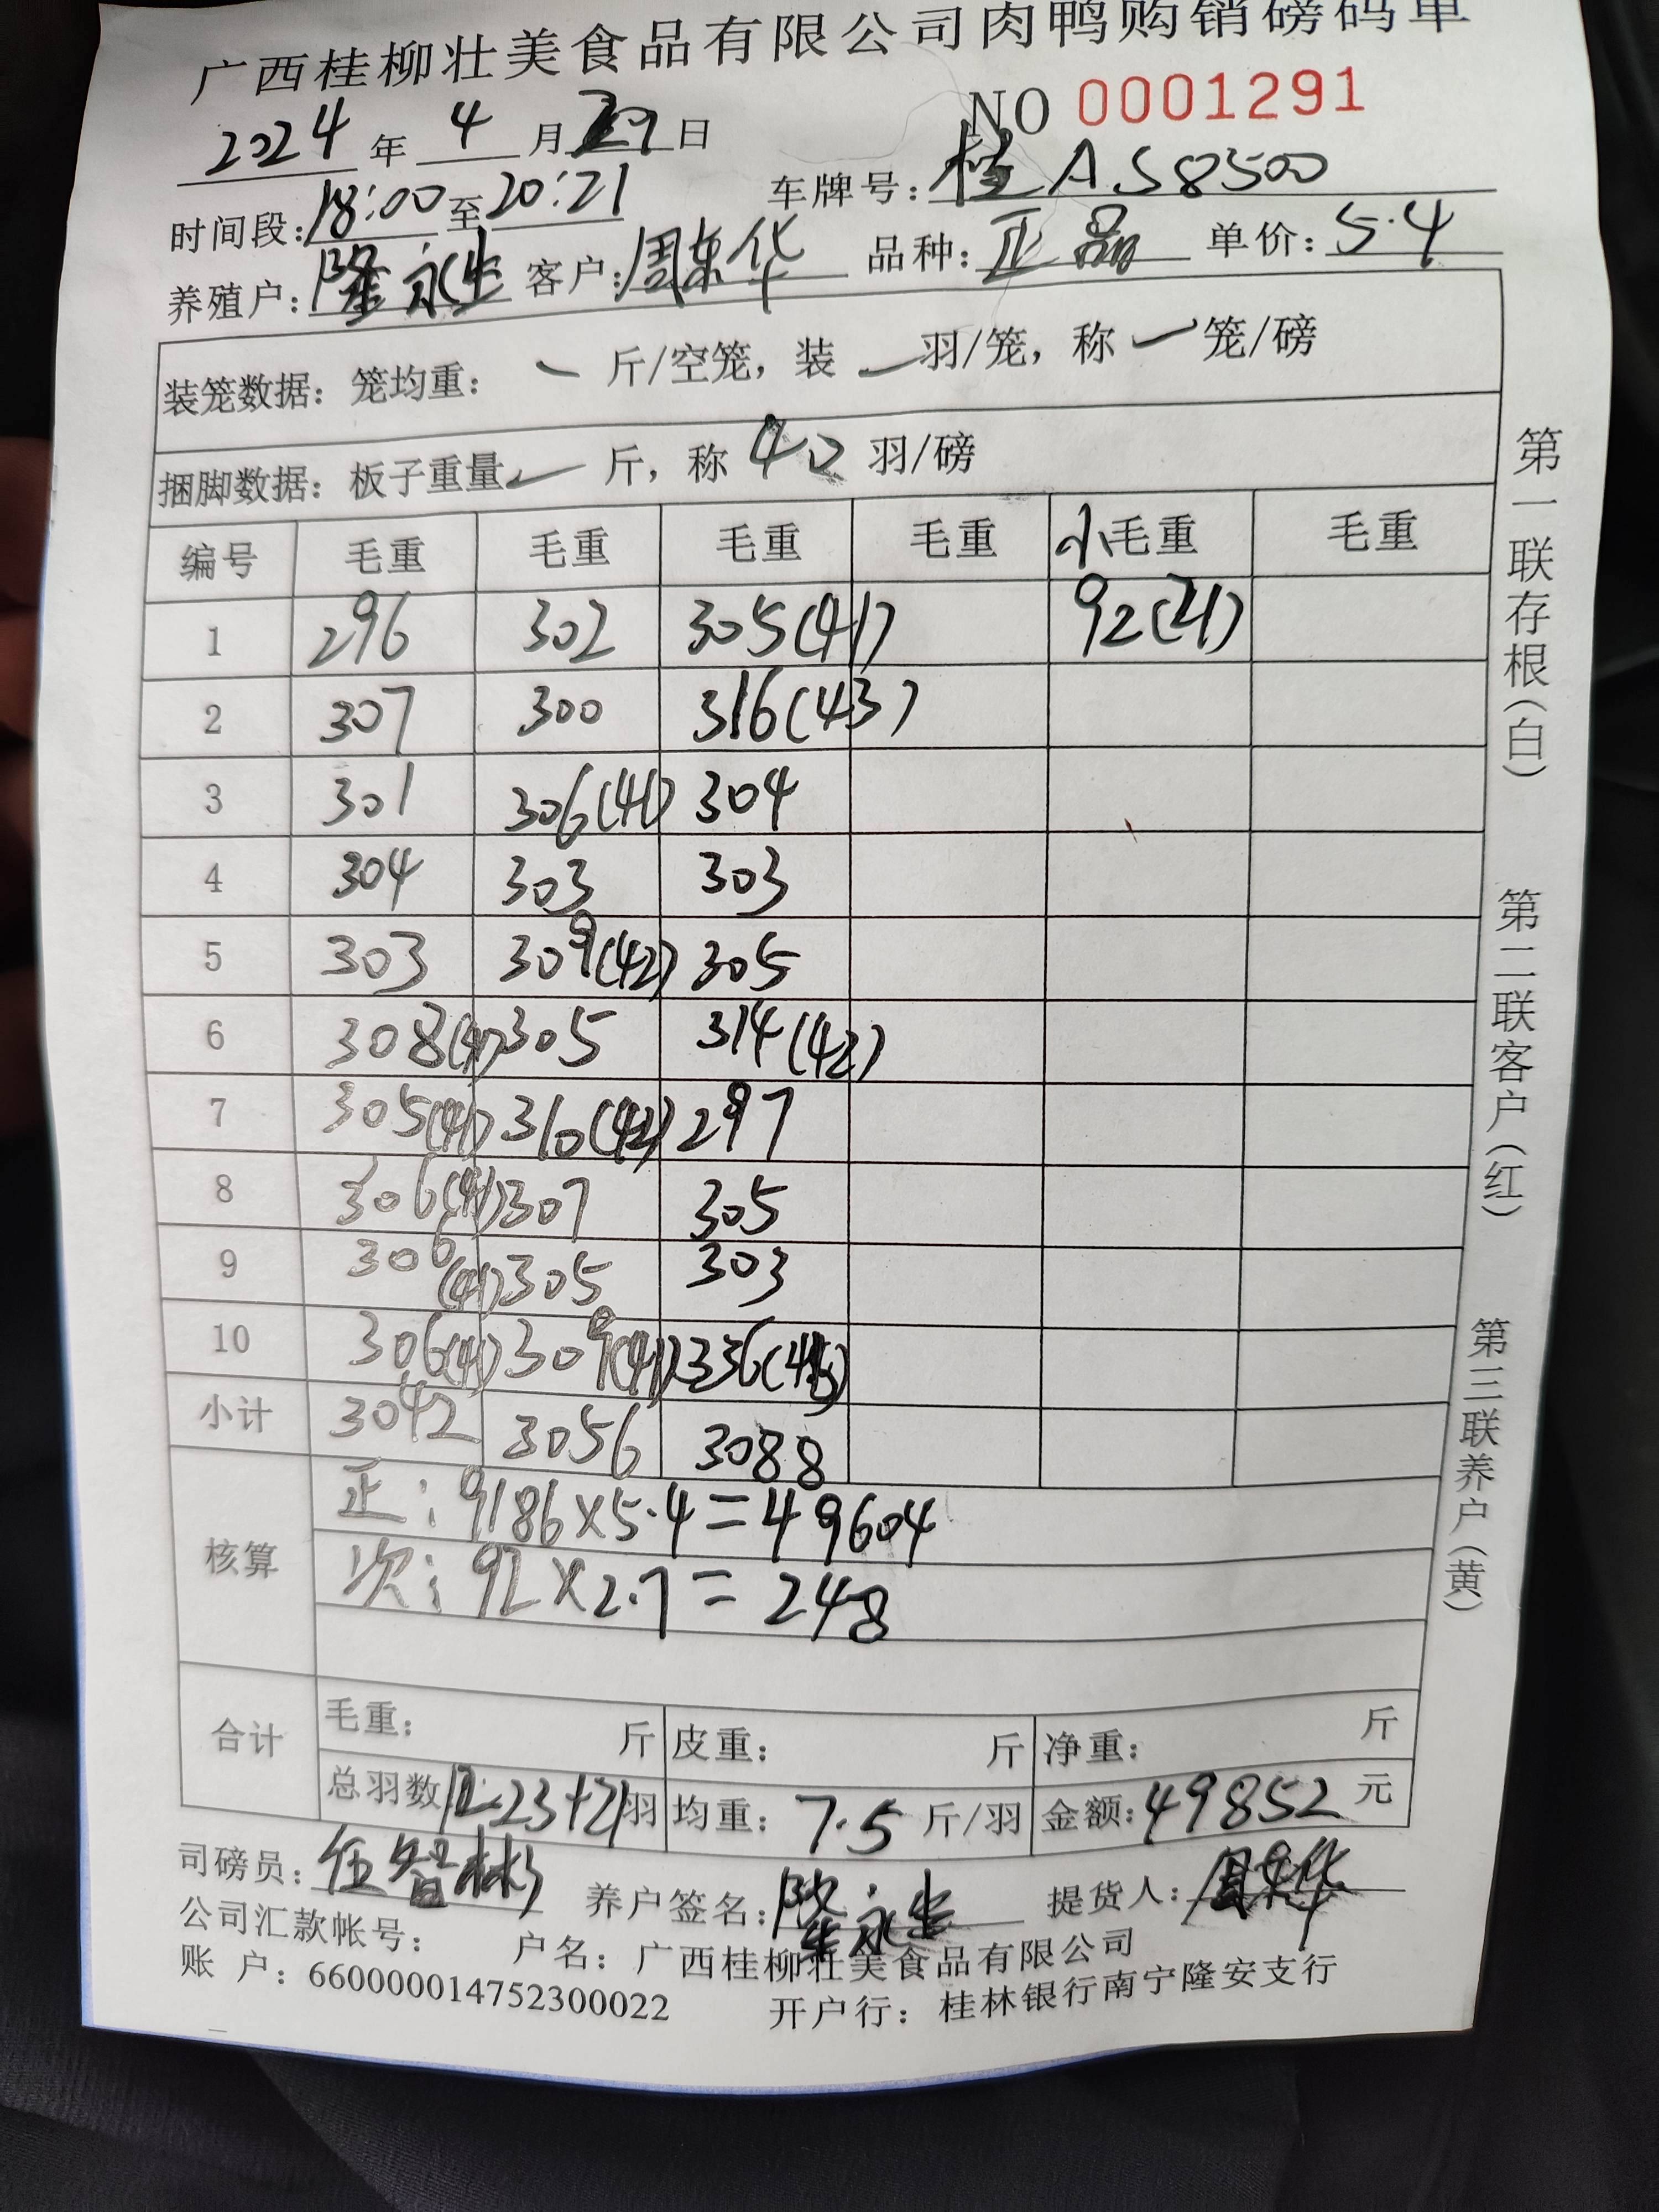 广西桂柳壮美食品有限公司肉鸭购销磅码单
NO 0001291
2024年 4 月 29 日
时间段:18:00至20:21 车牌号:桂A.S8500
养殖户:隆永生 客户:周东华 品种:正品 单价:5.4
装笼数据:笼均重: 斤/空笼,装 羽/笼,称 笼/磅
捆脚数据:板子重量 斤,称 40 羽/磅
编号 毛重 毛重 毛重 毛重 小毛重 毛重
1 296 302 305(41) 92(21)
2 307 300 316(43)
3 301 306(41) 304
4 304 303 303
5 303 309(42) 305
6 308(41) 305 314(42)
7 305(41) 310(42) 297
8 306(41) 307 305
9 306(41) 305 303
10 306(41) 309(41) 336
小计 3042 3056 3088
核算 正:9186×5.4=49604
次:92×2.7=248
合计 毛重: 斤 皮重: 斤 净重: 斤
总羽数 1223+21羽 均重:7.5斤/羽 金额:49852元
司磅员:伍智彬 养户签名:隆永生 提货人:周东华
公司汇款帐号: 户名:广西桂柳壮美食品有限公司
账 户:660000014752300022 开户行:桂林银行南宁隆安支行
第一联存根(白)
第二联客户(红)
第三联养户(黄)